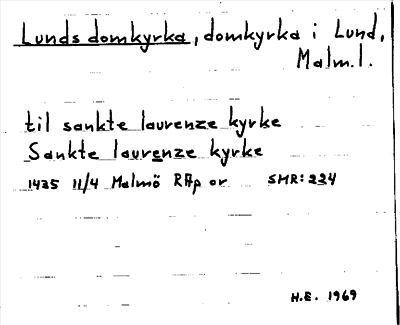 Lunds domkyrka, domkyrka i Lund,
Malm.l.
til sankte laurenze kyrke
Sankte laurenze kyrke
1435 11/4 Malmö RAp or SMR: 224
H.E. 1969